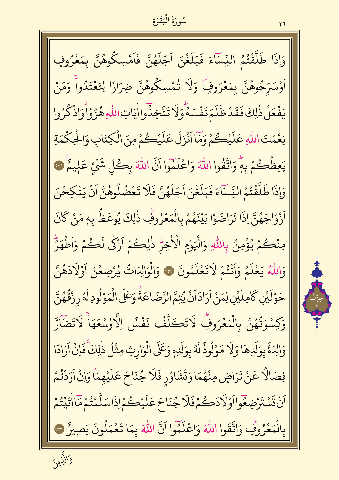 سُورَةُ الْبَقَرَةِ
٣٦
وَاِذَا طَلَّقْتُمُ النِّسَٓاءَ فَبَلَغْنَ اَجَلَهُنَّ فَاَمْسِكُوهُنَّ بِمَعْرُوفٍ
اَوْ سَرِّحُوهُنَّ بِمَعْرُوفٍ وَلَا تُمْسِكُوهُنَّ ضِرَارًا لِتَعْتَدُواۚ وَمَنْ
يَفْعَلْ ذٰلِكَ فَقَدْ ظَلَمَ نَفْسَهُۜ وَلَا تَتَّخِذُٓوا اٰيَاتِ اللّٰهِ هُزُوًا وَاذْكُرُوا
نِعْمَتَ اللّٰهِ عَلَيْكُمْ وَمَٓا اَنْزَلَ عَلَيْكُمْ مِنَ الْكِتَابِ وَالْحِكْمَةِ
يَعِظُكُمْ بِهِۜ وَاتَّقُوا اللّٰهَ وَاعْلَمُٓوا اَنَّ اللّٰهَ بِكُلِّ شَيْءٍ عَلِيمٌ
وَاِذَا طَلَّقْتُمُ النِّسَٓاءَ فَبَلَغْنَ اَجَلَهُنَّ فَلَا تَعْضُلُوهُنَّ اَنْ يَنْكِحْنَ
اَزْوَاجَهُنَّ اِذَا تَرَاضَوْا بَيْنَهُمْ بِالْمَعْرُوفِۜ ذٰلِكَ يُوعَظُ بِهِ مَنْ كَانَ
مِنْكُمْ يُؤْمِنُ بِاللّٰهِ وَالْيَوْمِ الْاٰخِرِۜ ذٰلِكُمْ اَزْكٰى لَكُمْ وَاَطْهَرُۜ
وَاللّٰهُ يَعْلَمُ وَاَنْتُمْ لَا تَعْلَمُونَ وَالْوَالِدَاتُ يُرْضِعْنَ اَوْلَادَهُنَّ
حَوْلَيْنِ كَامِلَيْنِ لِمَنْ اَرَادَ اَنْ يُتِمَّ الرَّضَاعَةَۜ وَعَلَى الْمَوْلُودِ لَهُ رِزْقُهُنَّ
وَكِسْوَتُهُنَّ بِالْمَعْرُوفِۜ لَا تُكَلَّفُ نَفْسٌ اِلَّا وُسْعَهَاۚ لَا تُضَٓارَّ
وَالِدَةٌ بِوَلَدِهَا وَلَا مَوْلُودٌ لَهُ بِوَلَدِهِ وَعَلَى الْوَارِثِ مِثْلُ ذٰلِكَۚ فَاِنْ اَرَادَا
فِصَالًا عَنْ تَرَاضٍ مِنْهُمَا وَتَشَاوُرٍ فَلَا جُنَاحَ عَلَيْهِمَاۜ وَاِنْ اَرَدْتُمْ
اَنْ تَسْتَرْضِعُٓوا اَوْلَادَكُمْ فَلَا جُنَاحَ عَلَيْكُمْ اِذَا سَلَّمْتُمْ مَٓا اٰتَيْتُمْ
بِالْمَعْرُوفِۜ وَاتَّقُوا اللّٰهَ وَاعْلَمُٓوا اَنَّ اللّٰهَ بِمَا تَعْمَلُونَ بَصِيرٌ
وَالَّذِينَ